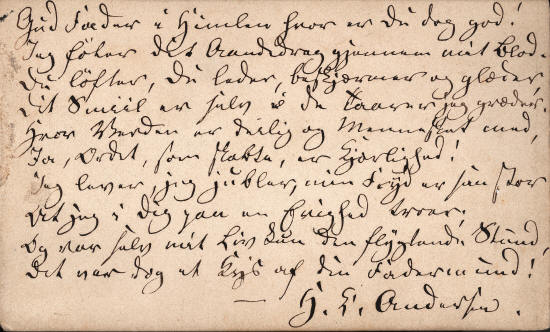 Gud Fader i Himlen hvor er Du dog god!
Jeg føler dit Aandedrag gjennem mit Blod.
Du løfter, Du leder, beskjærmer og glæder,
Dit Smiil er selv i de Taarer jeg græder.
Hvor Verden er deilig og Mennesket med,
Ja, Ordet, som skabte, er Kjærlighed!
Jeg lever, jeg jubler, min Fryd er saa stor
At jeg i Dig paa en Evighed troer.
Og var selv mit Liv kun den flygtende Stund,
Det var dog et Kys af din Fadermund!
H. C. Andersen.